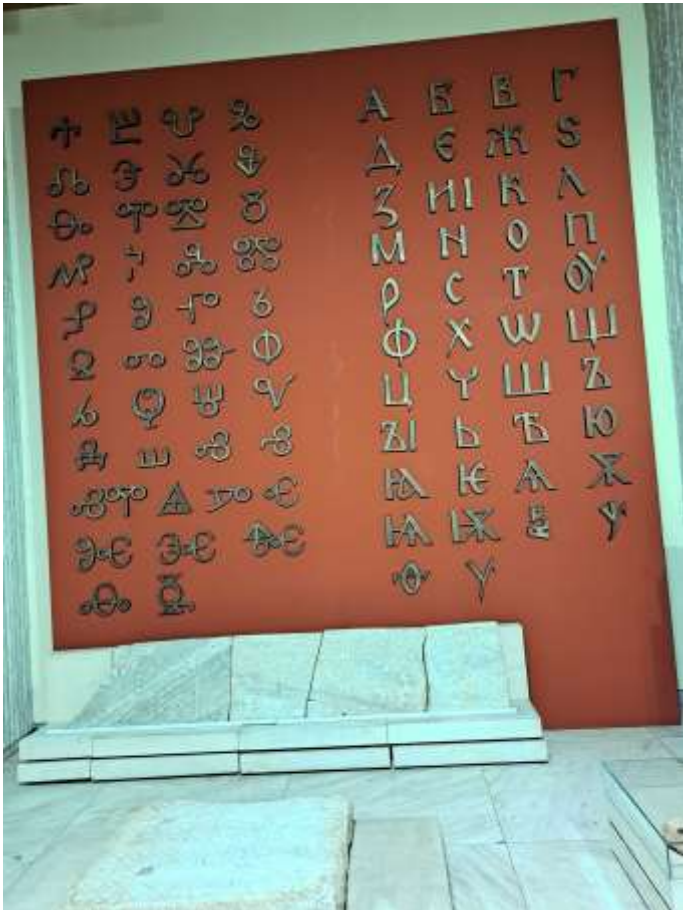 Ⰰ Ⰱ Ⰲ Ⰳ
Ⰴ Ⰵ Ⰶ Ⰷ
Ⰸ Ⰺ Ⰹ Ⰻ
Ⰼ Ⰽ Ⰾ Ⰿ
Ⱀ Ⱁ Ⱂ Ⱃ
Ⱄ Ⱅ Ⱆ Ⱇ
Ⱈ Ⱉ Ⱋ Ⱌ
Ⱍ Ⱎ Ⱏ Ⱐ
ⰟⰊ Ⱑ Ⱓ Ⱔ
Ⱘ Ⱗ Ⱙ
Ⱚ Ⱛ
А Б В Г
Д Є Ж Ѕ
З И І К Л
М Н О П
Р С Т Ѹ
Ф Х Ѡ Щ
Ц Ч Ш Ъ
ЪІ Ь Ѣ Ю
Ꙗ Ѥ Ѧ Ѫ
Ѩ Ѭ Ѯ Ѱ
Ѳ Ѵ